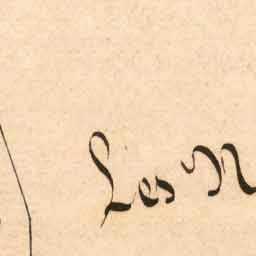 Les N